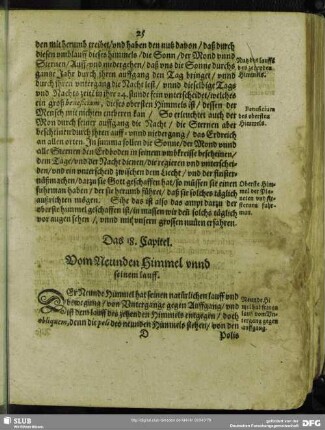 25
den mit herumb treibet/ vnd haben den nutz davon/ daß durch
diesen vmblauff dieses himmels/ die Sonn/ der Mond vnnd
Sternen/ Auff/ vnd niedergehen/ daß vns die Sonne durchs
gantze Jahr durch ihren auffgang den Tag bringet/ vnnd
durch ihren vntergang die Nacht lest/ vnnd dieselbige Tags
vnd Nacht zeit in ihre 24. stunden vnterscheidet/ welches
ein groß beneficium, dieses obersten Himmels ist/ dessen der
Mensch mit nichten entberen kan/ So erleuchtet auch der
Mon durch seinen auffgang die Nacht/ die Sternen aber
bescheinen durch ihren auff- vnnd niedergang/ das Erdreich
an allen orten. In summa sollen die Sonne/ der Mond vnnd
alle Sternen den Erdboden in seinem vmbkreise bescheinen/
dem Tage/ vnd der Nacht dienen/ die regieren vnd vnterscheiden/
vnd ein vnterscheid zwischen dem Liecht/ vnd der finsternüß
machen/ darzu sie Gott geschaffen hat/ so müssen sie einen
fuhrman haben/ der sie herumb führe/ daß sie solches täglich
außrichten mögen. Sihe das ist also das ampt darzu der
oberste himmel geschaffen ist/ in massen wir deß solchs täglich
vor augen sehen/ vnnd mit vnserm grossen nutzen erfahren.
Nutz des lauffs
des zehenden
Himmels.
Beneficium
des obersten
Himmels.
Oberste Himmel
der Planeten
vnd
Sternen fuhrman.
Das 18. Capitel.
Vom Neunden Himmel vnnd
seinem lauff.
Der Neunde Himmel hat seinen natürlichen lauff vnd
bewegung/ von Vntergange gegen Auffgang/ vnd
ist dem lauff des zehenden Himmels entgegen/ doch
obliquum, denn die poli des neunden Himmels stehen/ von den
Neunde Himmel
hat seinen
lauff vom Vntergang
gegen
auffgang.
D
Polis
SLUB
Wir führen Wissen.
gefördert von der
Deutschen Forschungsgemeinschaft
DFG